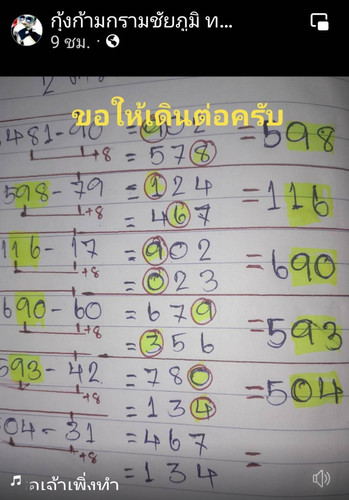 กุ้งก้ามกรามชัยภูมิ ท...
9 ชม. ·
ขอให้เดินต่อครับ
481-90 = 902 = 598
+8 = 578
598-79 = 124 = 116
+8 = 467
116-17 = 902 = 690
+8 = 023
690-60 = 679 = 593
+8 = 356
593-42 = 780 = 504
+8 = 134
04-31 = 467 =
+8 = 134